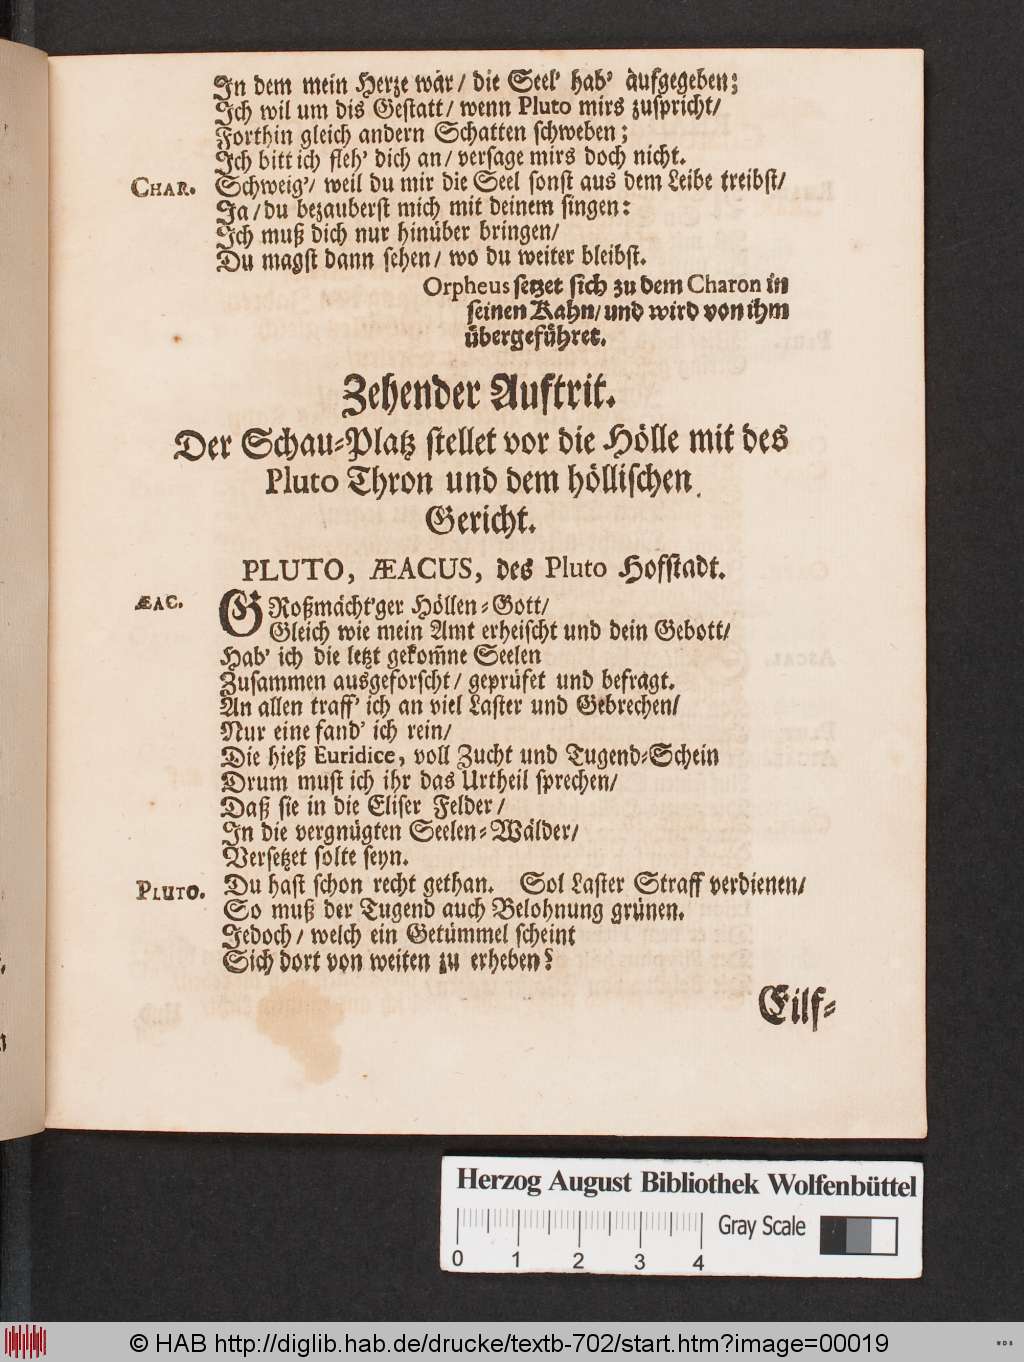 In dem mein Herze wår/ die Seel' hab' aufgegeben;
Ich wil um dis Gestatt/ wenn Pluto mirs zuspricht/
Forthin gleich andern Schatten schweben;
Ich bitt ich fleh' dich an/ versage mirs doch nicht.
CHAR. Schweig'/ weil du mir die Seel sonst aus dem Leibe treibst/
Ja/ du bezauberst mich mit deinem singen:
Ich muß dich nur hinüber bringen/
Du magst dann sehen/ wo du weiter bleibst.
Orpheus setzet sich zu dem Charon in
seinen Kahn/ und wird von ihm
übergeführet.
Zehender Auftrit.
Der Schau-Platz stellet vor die Hölle mit des
Pluto Thron und dem höllischen
Gericht.
PLUTO, ÆACUS, des Pluto Hofstadt.
ÆAC. GRoßmächt'ger Höllen-Gott/
Gleich wie mein Amt erheischt und dein Gebott/
Hab' ich die letzt gekom̃ne Seelen
Zusammen ausgeforscht/ geprüfet und befragt.
An allen traff' ich an viel Laster und Gebrechen/
Nur eine fand' ich rein/
Die hieß Euridice, voll Zucht und Tugend-Schein
Drum must ich ihr das Urtheil sprechen/
Daß sie in die Eliser Felder/
In die vergnügten Seelen-Wälder/
Versetzet solte seyn.
PLUTO. Du hast schon recht gethan. Sol Laster Straff verdienen/
So muß der Tugend auch Belohnung grünen.
Jedoch/ welch ein Getümmel scheint
Sich dort von weiten zu erheben?
Eilf-
Herzog August Bibliothek Wolfenbüttel
Gray Scale
0 1 2 3 4
© HAB http://diglib.hab.de/drucke/textb-702/start.htm?image=00019